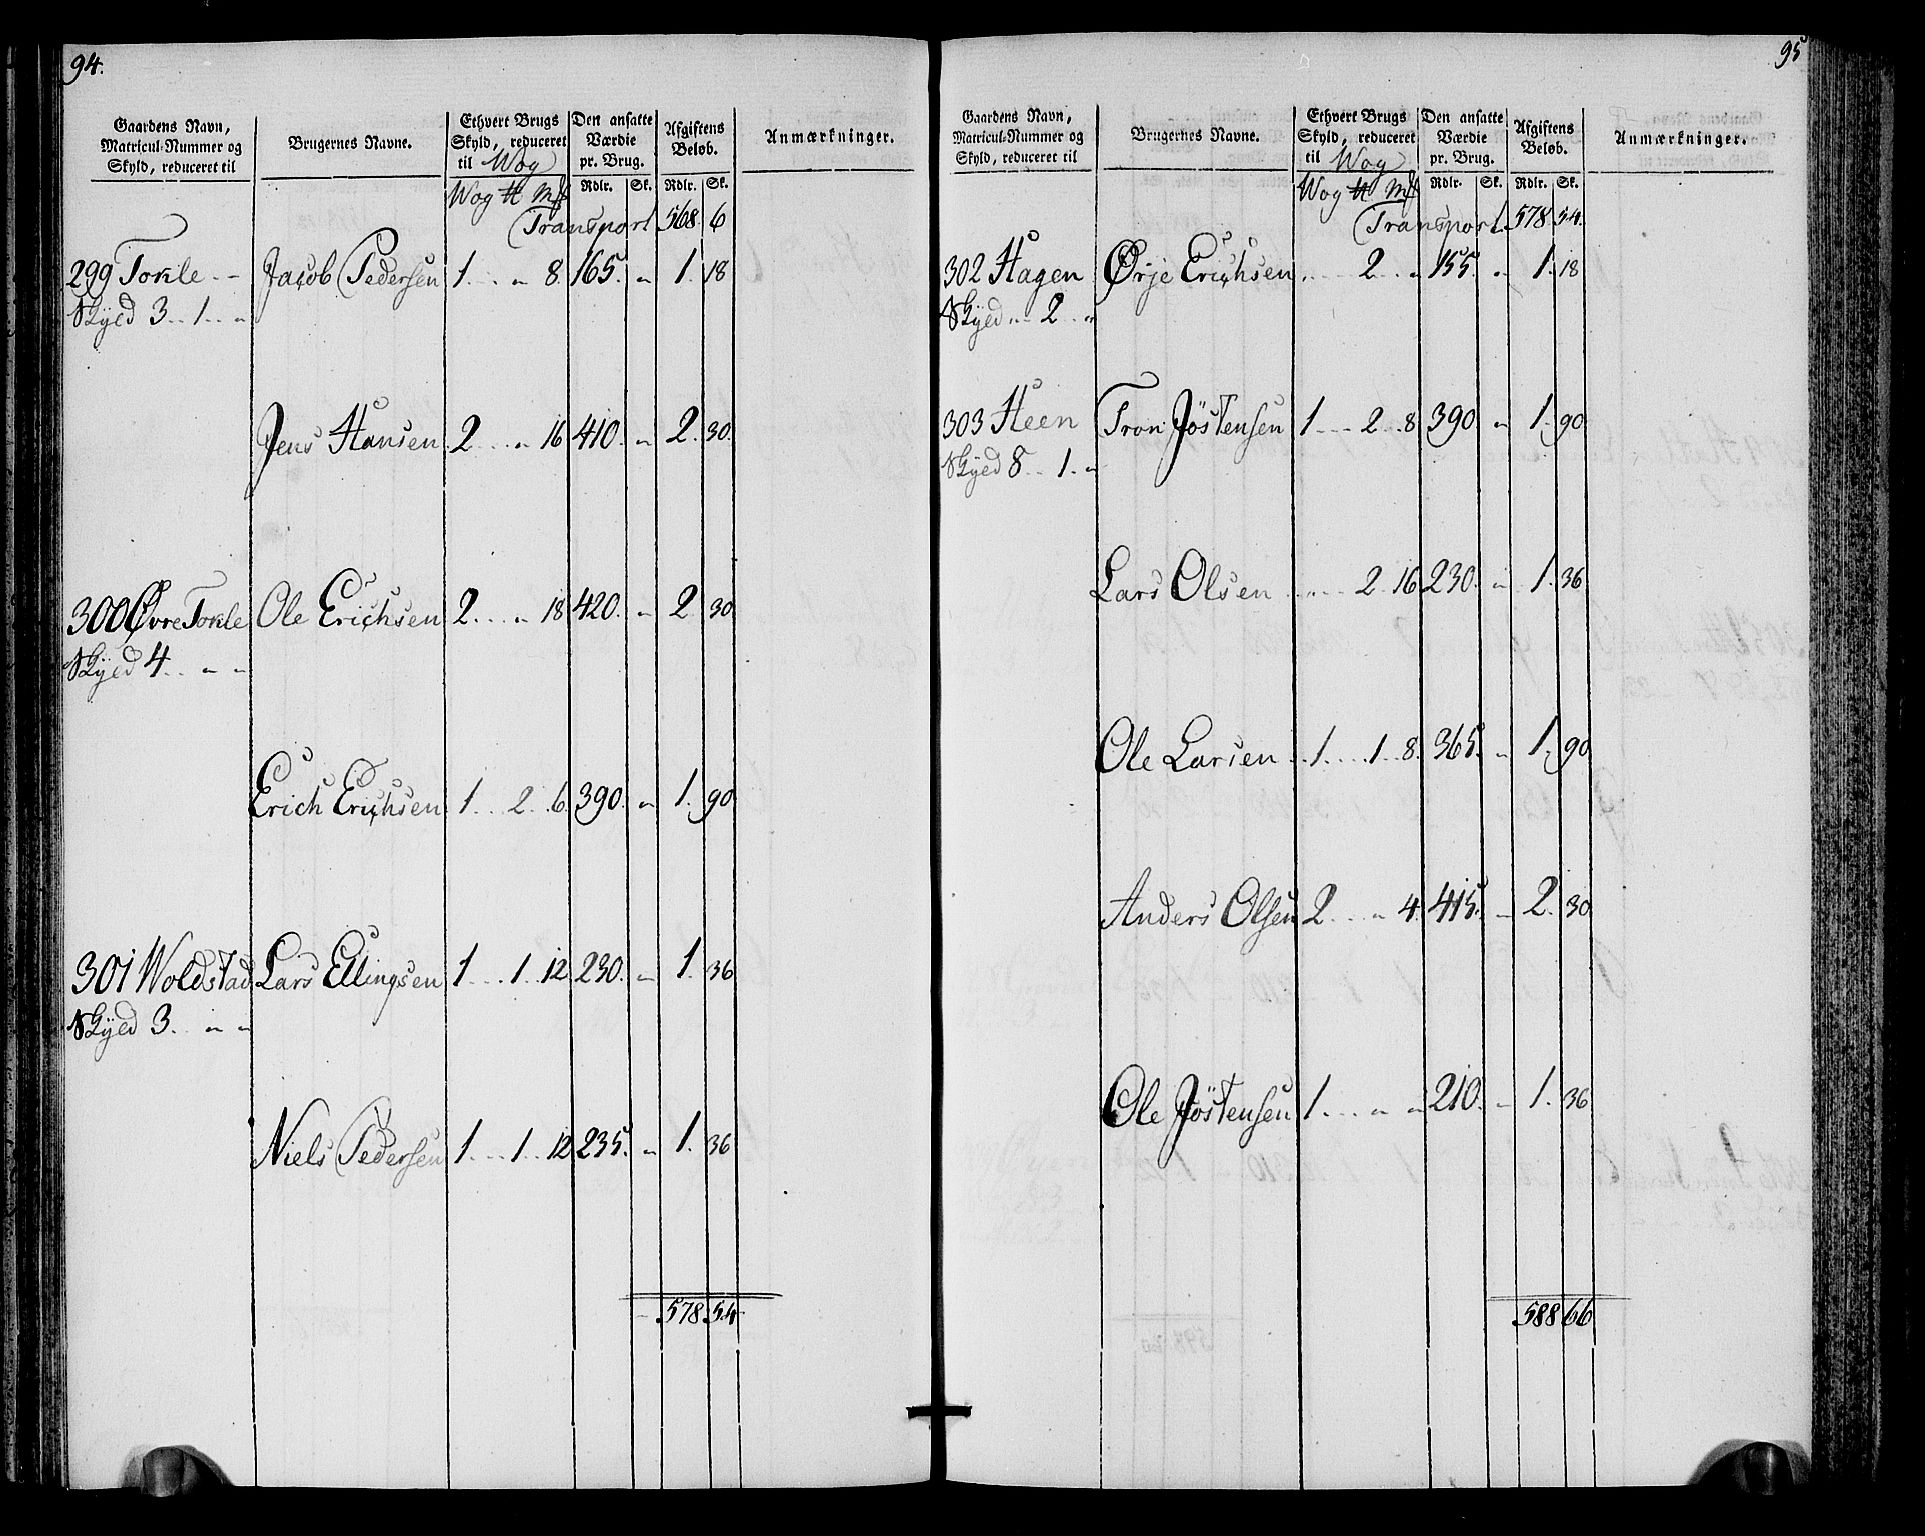 94.
Gaardens Navn, Matricul-Nummer og Skyld, reduceret til
Brugernes Navne.
Ethvert Brugs Skyld, reduceret til Wog
Den ansatte Værdie pr. Brug.
Afgiftens Beløb.
Anmærkninger.
Wog ℔ Mk Rdlr. Sk. Rdlr. Sk.
Transport 568 6
299 Tokle - - Jacob Pedersen 1 . . „ 8. 165. „ 1. 18
Skyld 3 . . 1 . . „
Jens Hansen 2 . . . „ 16 410. „ 2. 30.
300 Øvre Tokle Ole Erichsen 2 . . . „ 18 420. „ 2 30
Skyld 4 . . „ „
Erich Erichsen 1 . . 2 . . 6. 390. „ 1. 90
301 Woldstad Lars Ellingsen 1 . . . 1 . . 12 230. „ 1. 36
Skyld 3 . . „ „
Niels Pedersen 1 . . . 1 . . 12 235. „ 1. 36
578 54
95
Gaardens Navn, Matricul-Nummer og Skyld, reduceret til
Brugernes Navne.
Ethvert Brugs Skyld, reduceret til Wog
Den ansatte Værdie pr. Brug.
Afgiftens Beløb.
Anmærkninger.
Wog ℔ Mk Rdlr. Sk. Rdlr. Sk.
Transport 578 54.
302 Hagen Ørje Erichsen . . . . 2 . . „ 155. „ 1. 18
Skyld „ . . 2 . . „
303 Heen Tron Jöstensen 1 . . . 2 . . 8 390 „ 1. 90
Skyld 8 . . 1 . „
Lars Olsen . . „ . . 2 16 230. „ 1. 36
Ole Larsen . . 1 . . . . 1 . . 8. 365. „ 1. 90
Anders Olsen 2 . . . „ 4. 415. „ 2. 30
Ole Jöstensen 1 . . . „ „ 210. „ 1. 36
588 66